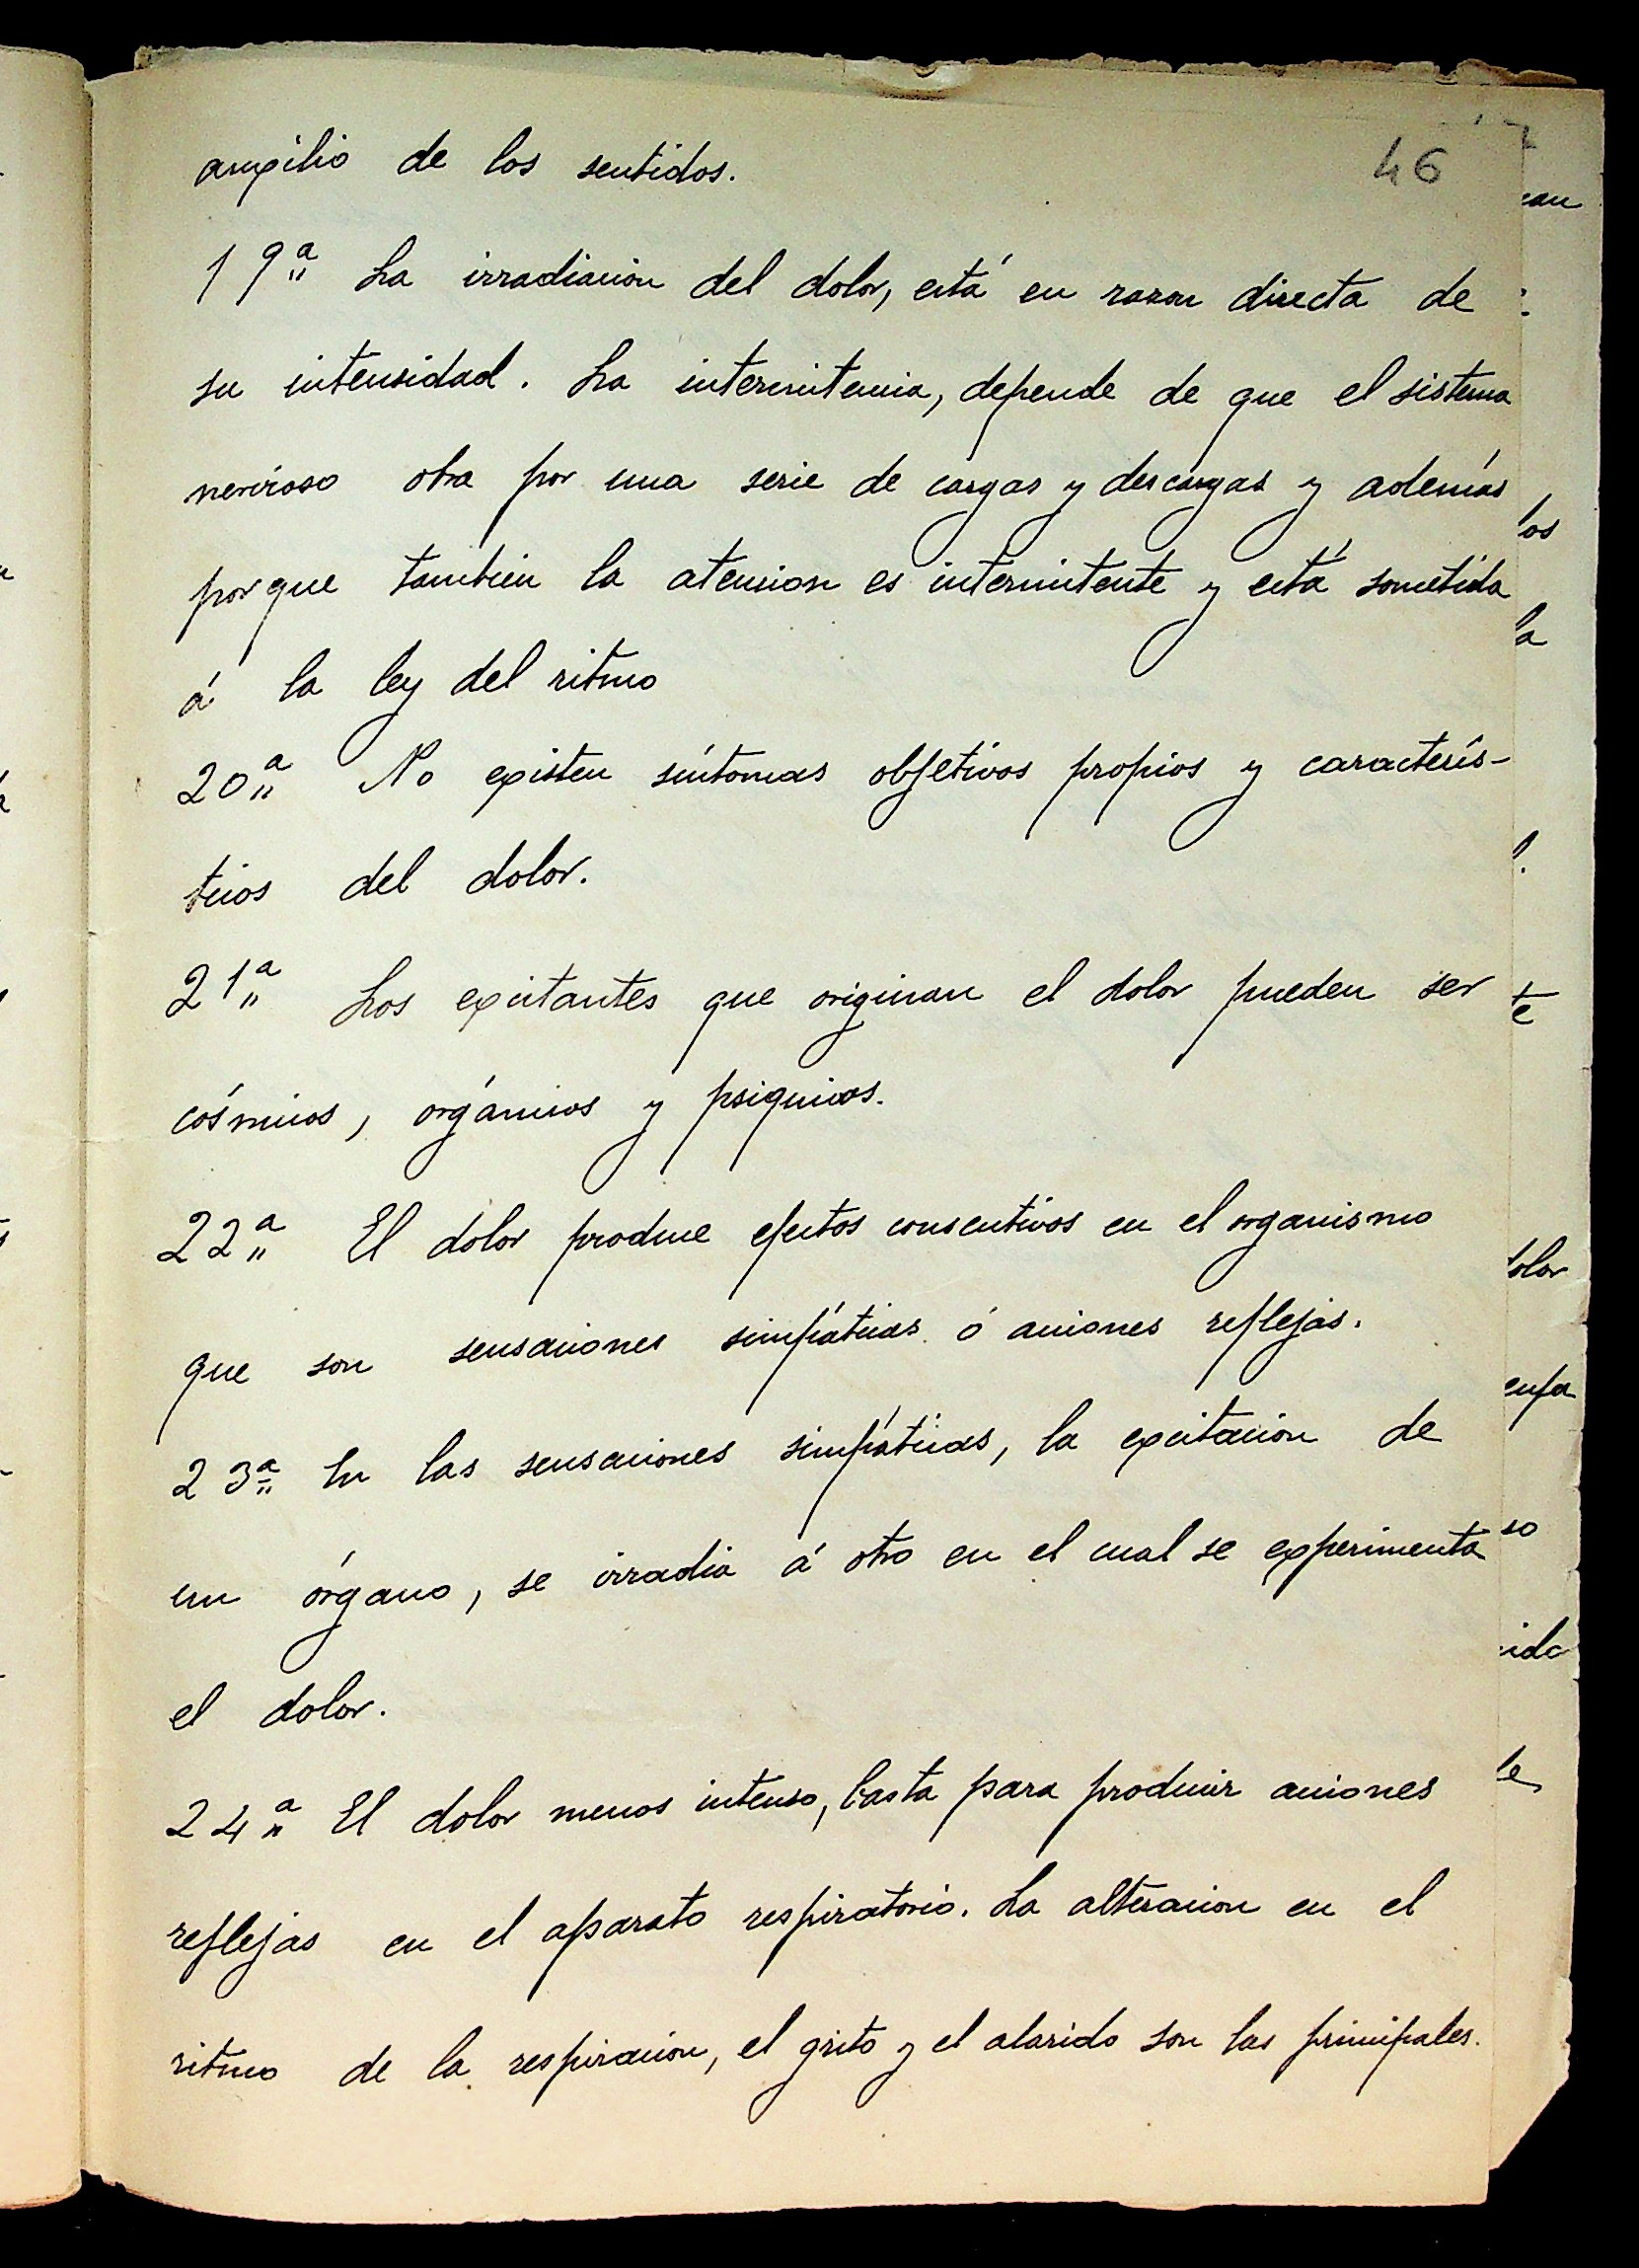 46
auxilio de los sentidos.
19ª La irradiacion del dolor, está en razon directa de
su intensidad. La intermitencia, depende de que el sistema
nervioso obra por una serie de cargas y descargas y además
porque tambien la atencion es intermitente y está sometida
á la ley del ritmo
20ª No existen síntomas objetivos propios y caracterís-
ticos del dolor.
21ª Los excitantes que originan el dolor pueden ser
cósmicos, orgánicos y psiquicos.
22ª El dolor produce efectos consecutivos en el organismo
que son sensaciones simpáticas ó acciones reflejas.
23ª En las sensaciones simpáticas, la excitacion de
un órgano, se irradia á otro en el cual se experimenta
el dolor.
24ª El dolor menos intenso, basta para producir acciones
reflejas en el aparato respiratorio. La alteracion en el
ritmo de la respiracion, el grito y el alarido son las principales.